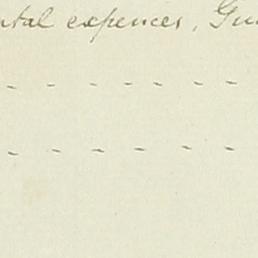 ntal expences, Gu
- - - - - - -
- - - - - -